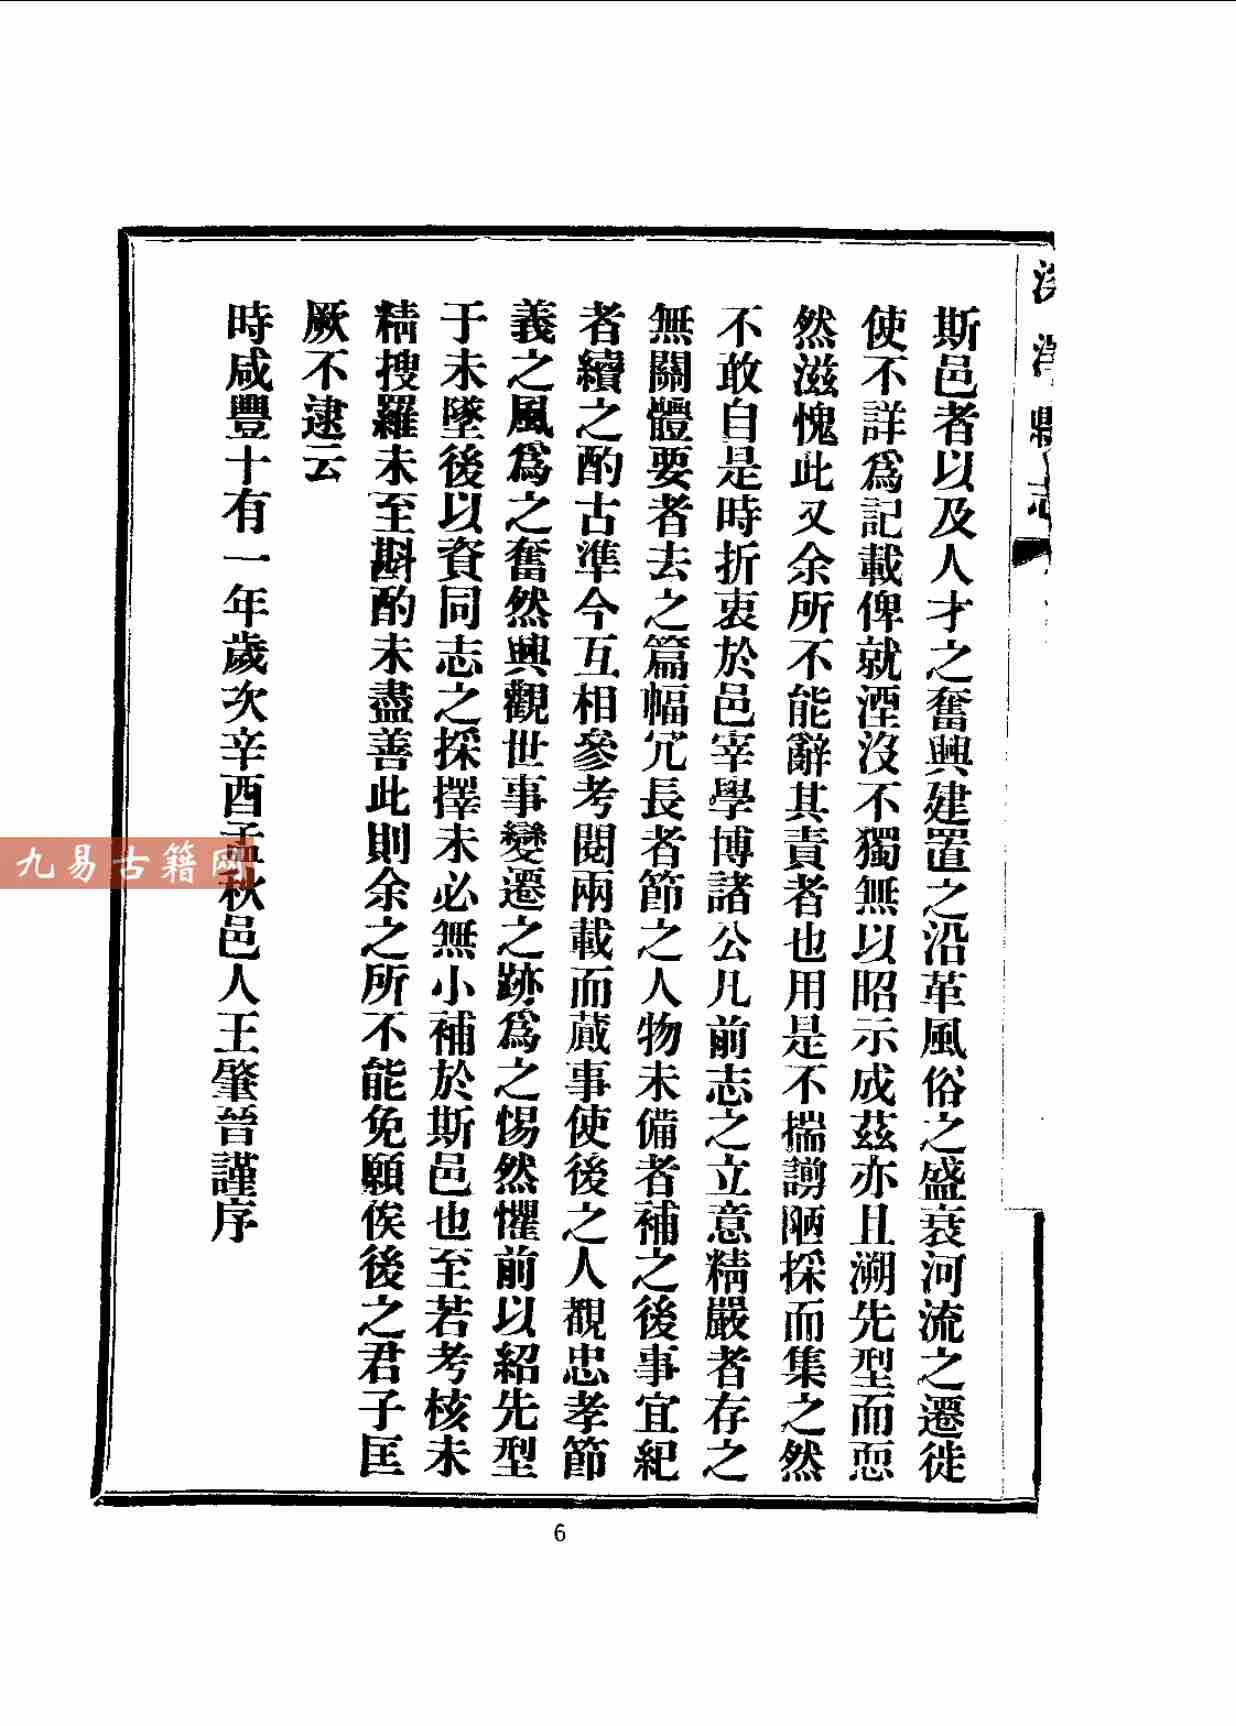 深澤縣志
斯邑者以及人才之奮興建置之沿革風俗之盛衰河流之遷徙
使不詳爲記載俾就湮沒不獨無以昭示成茲亦且溯先型而恧
然滋愧此又余所不能辭其責者也用是不揣譾陋採而集之然
不敢自是時折衷於邑宰學博諸公凡前志之立意精嚴者存之
無關體要者去之篇幅冗長者節之人物未備者補之後事宜紀
者續之酌古準今互相參考閱兩載而蕆事使後之人覩忠孝節
義之風爲之奮然興觀世事變遷之跡爲之惕然懼前以紹先型
于未墜後以資同志之採擇未必無小補於斯邑也至若考核未
精搜羅未至斟酌未盡善此則余之所不能免願俟後之君子匡
厥不逮云
時咸豐十有一年歲次辛酉孟秋邑人王肇晉謹序
九易古籍网
6